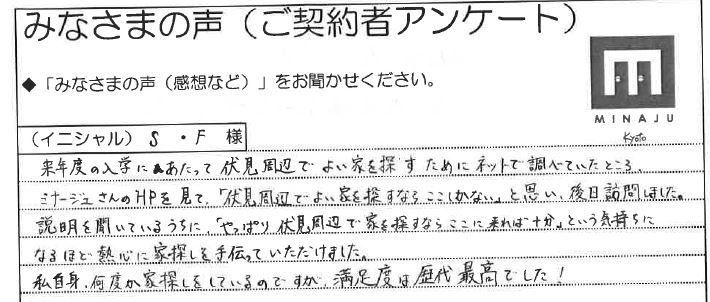 みなさまの声（ご契約者アンケート）
◆「みなさまの声（感想など）」をお聞かせください。
MINAJU
Kyoto
（イニシャル） S ・F 様
来年度の入学にあたって伏見周辺でよい家を探すためにネットで調べていたところ、
ミナージュさんのHPを見て、「伏見周辺でよい家を探すならここしかない」と思い、後日訪問しました。
説明を聞いているうちに、「やっぱり伏見周辺で家を探すならここに来れば十分」という気持ちに
なるほど熱心に家探しを手伝っていただけました。
私自身、何度か家探しをしているのですが、満足度は歴代最高でした！